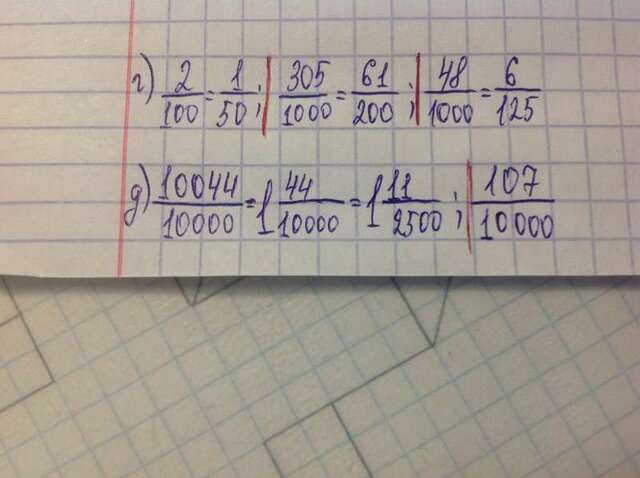 г) 2/100 = 1/50; | 305/1000 = 61/200; | 48/1000 = 6/125
д) 10044/10000 = 1 44/10000 = 1 11/2500; | 107/10000